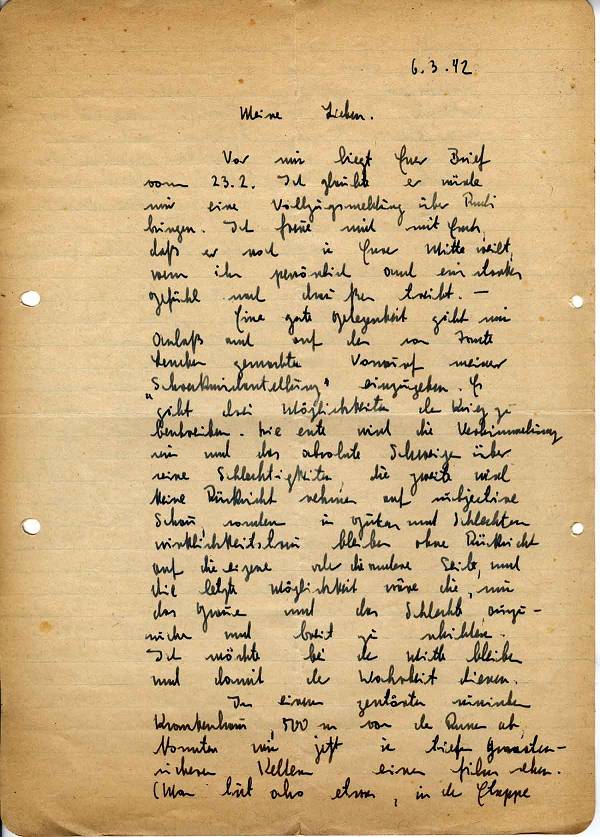 6.3.42
Meine Lieben.
Vor mir liegt Euer Brief
vom 23.2. Ich glaubte er würde
mir eine Vollzugsmeldung über Rudi
bringen. Ich freue mich mit Euch,
daß er noch in Eurer Mitte weilt,
wenn ihn persönlich auch ein starkes
Gefühl nach draußen treibt. —
Eine gute Gelegenheit gibt mir
Anlaß auch auf den von Tante
gemachten Vorwurf meiner
einzugehen. Es
gibt drei Möglichkeiten den Krieg zu
beschreiben. Die erste wird die Verhimmelung
sein und das absolute Schweigen über
seine Schlechtigkeiten, die zweite wird
keine Rücksicht nehmen auf subjective
Schau, sondern in Guten und Schlechten
wirklichkeitstreu bleiben ohne Rücksicht
auf die eigene oder die andere Seite, und
die letzte Möglichkeit wäre die, nur
das Graue und das Schlechte
und breit zu schildern.
Ich möchte bei der Mitte bleiben
und damit der Wahrheit dienen.
In einem zerstörten russischen
Krankenhaus, 500 m von den Russen ab,
konnten wir jetzt in tiefen Granaten-
sicheren Kellern einen Film sehen.
(Man hört also etwas, in der Etappe